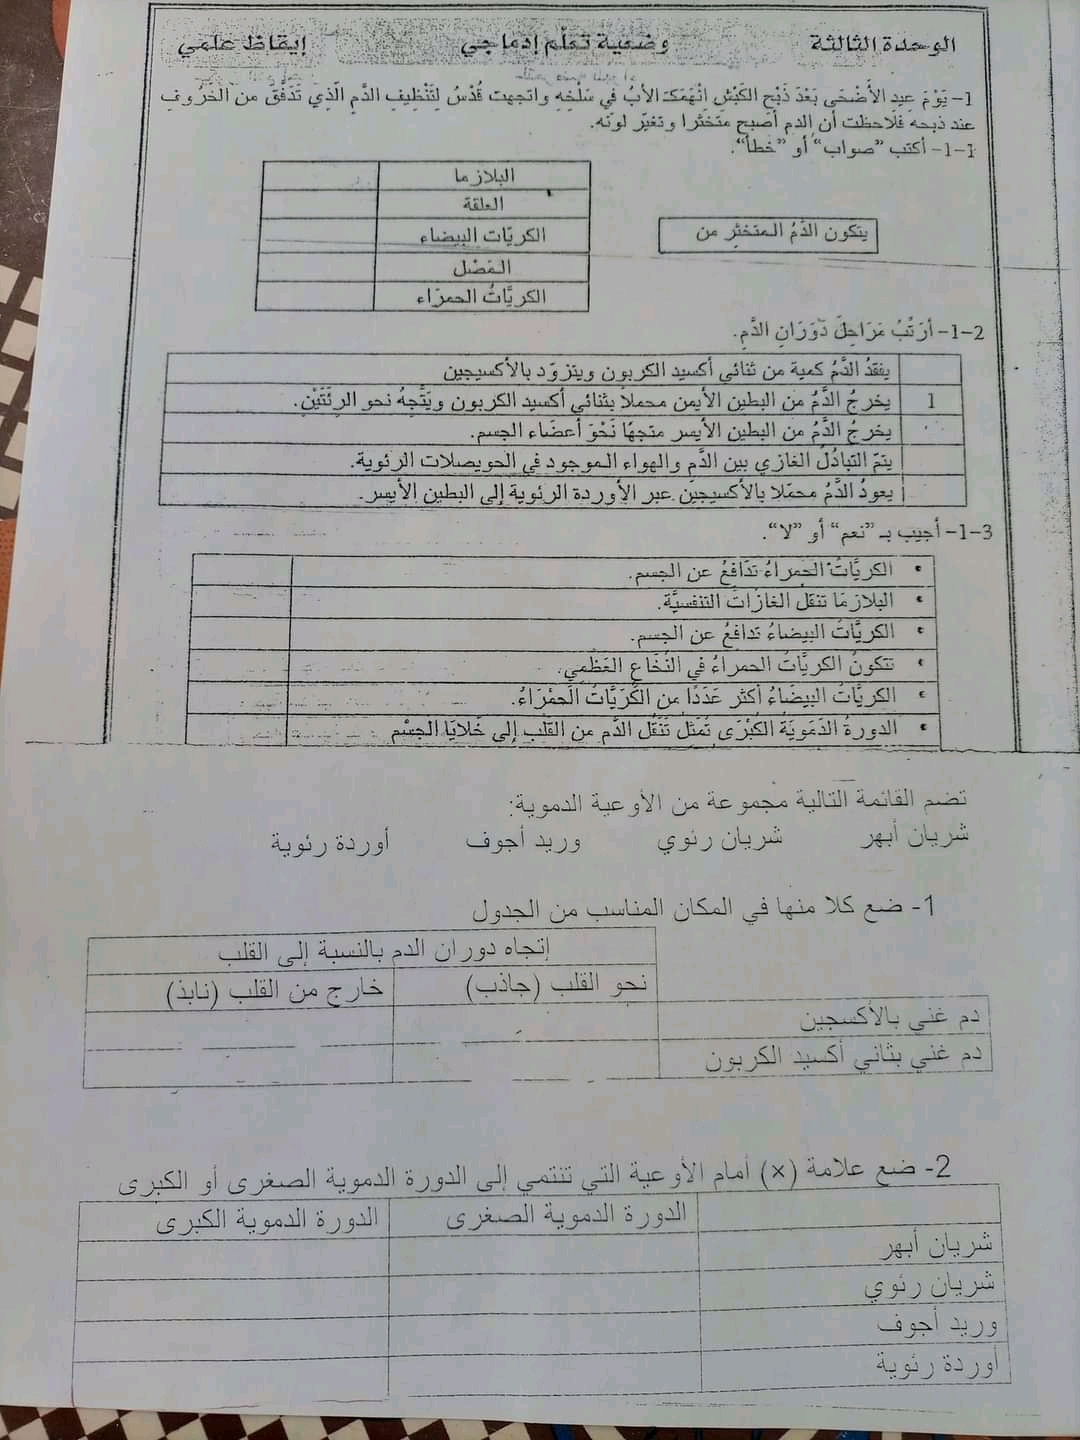 الوحدة الثالثة وضعية تعلّم إدماجي إيقاظ علمي
1- يَوْمَ عِيدِ الأَضْحَى بَعْدَ ذَبْحِ الكَبْشِ إِنْهَمَكَ الأبُ فِي سَلْخِهِ واتجهت قُدْسُ لتَنْظِيفِ الدَّمِ الَّذِي تَدَفَّقَ من الخَرُوفِ
عند ذبحه فلاحظت أن الدم أصبح متخثرا وتغيّر لونه.
1-1- أكتب "صواب" أو "خطأ".
يتكون الدَّمُ المتخثِر من
البلازما
العلقة
الكريّات البيضاء
المَصْل
الكريَّاتُ الحمرَاء
1-2- أرَتِّبُ مَرَاحِلَ دَوَرَانِ الدَّمِ.
يفقدُ الدَّمُ كمية من ثنائي أكسيد الكربون ويتزوّد بالأكسيجين
1 يخرجُ الدَّمُ من البطين الأيمن محملاً بثنائي أكسيد الكربون ويَتَّجِهُ نحو الرِئَتَيْنِ.
يخرجُ الدَّمُ من البطين الأيسر متجهًا نَحْوَ أعضَاء الجسم.
يتمّ التبادُلُ الغازي بين الدَّمِ والهواء الموجود في الحويصلات الرئوية.
يعودُ الدَّمُ محمّلا بالأكسيجين عبر الأوردة الرئوية إلى البطين الأيسر.
1-3- أجيب بـ "نعم" أو "لا".
• الكريَّاتُ الحمراءُ تدَافعُ عن الجسم.
• البلازمَا تنقل الغازَاتِ التنفسيَّة.
• الكريَّاتُ البيضاءُ تدافعُ عن الجسم.
• تتكونُ الكريَّاتُ الحمراءُ في النُخَاعِ العَظْمِي.
• الكريَّاتُ البيضَاءُ أكثر عَدَدًا من الكُرَيَّاتُ الحَمْرَاءُ.
• الدورةُ الدَمَوِيَةُ الكبْرَى تُمَثِلُ تَنَقُلَ الدَّم من القَلب إلى خَلايَا الجِسْم
تضم القائمة التالية مجموعة من الأوعية الدموية:
شريان أبهر شريان رئوي وريد أجوف أوردة رئوية
1- ضع كلا منها في المكان المناسب من الجدول
إتجاه دوران الدم بالنسبة إلى القلب
نحو القلب (جاذب) خارج من القلب (نابذ)
دم غني بالأكسجين
دم غني بثاني أكسيد الكربون
2- ضع علامة (×) أمام الأوعية التي تنتمي إلى الدورة الدموية الصغرى أو الكبرى
الدورة الدموية الصغرى الدورة الدموية الكبرى
شريان أبهر
شريان رئوي
وريد أجوف
أوردة رئوية